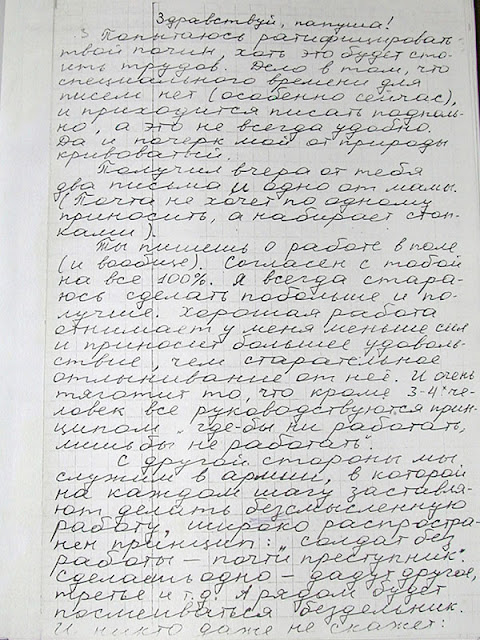 Здравствуй, папуша!
Попытаюсь ратифицировать
твой почин, хоть это будет сто-
ить трудов. Дело в том, что
специального времени для
писем нет (особенно сейчас),
и приходится писать подполь-
но, а это не всегда удобно.
Да и почерк мой от природы
кривоватый.
Получил вчера от тебя
два письма и одно от мамы.
(Почта не хочет по одному
приносить, а набирает стоп-
ками).
Ты пишешь о работе в поле
(и вообще). Согласен с тобой
на все 100%. Я всегда стара-
юсь сделать побольше и по-
лучше. Хорошая работа
отнимает у меня меньше сил
и приносит большее удоволь-
ствие, чем старательное
отлынивание от неё. И очень
тяготит то, что кроме 3-4х че-
ловек все руководствуются прин-
ципом „где-бы ни работать,
лишь бы не работать".
С другой стороны мы
служим в армии, в которой
на каждом шагу заставля-
ют делать бессмысленную
работу, широко распростра-
нен принцип: „солдат без
работы – почти преступник"
Сделаешь одно – дадут другое,
третье и т.д. А рядом будет
посмеиваться бездельник.
И никто даже не скажет: